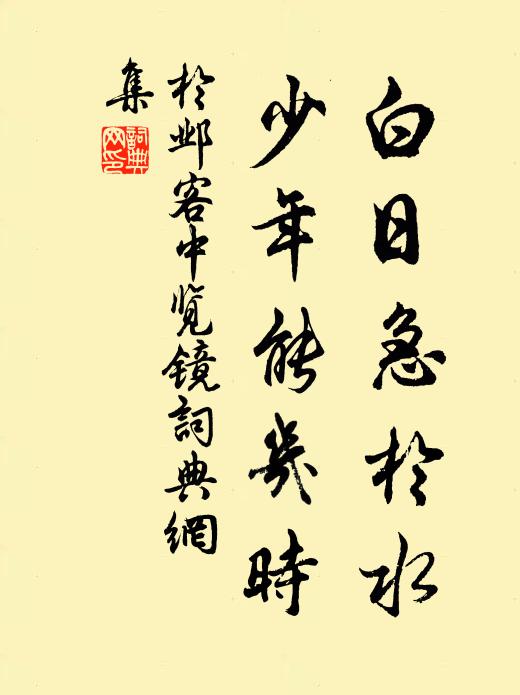 白日急於水
少年能幾時
於邺客中览镜詞典網
集
詞典网印